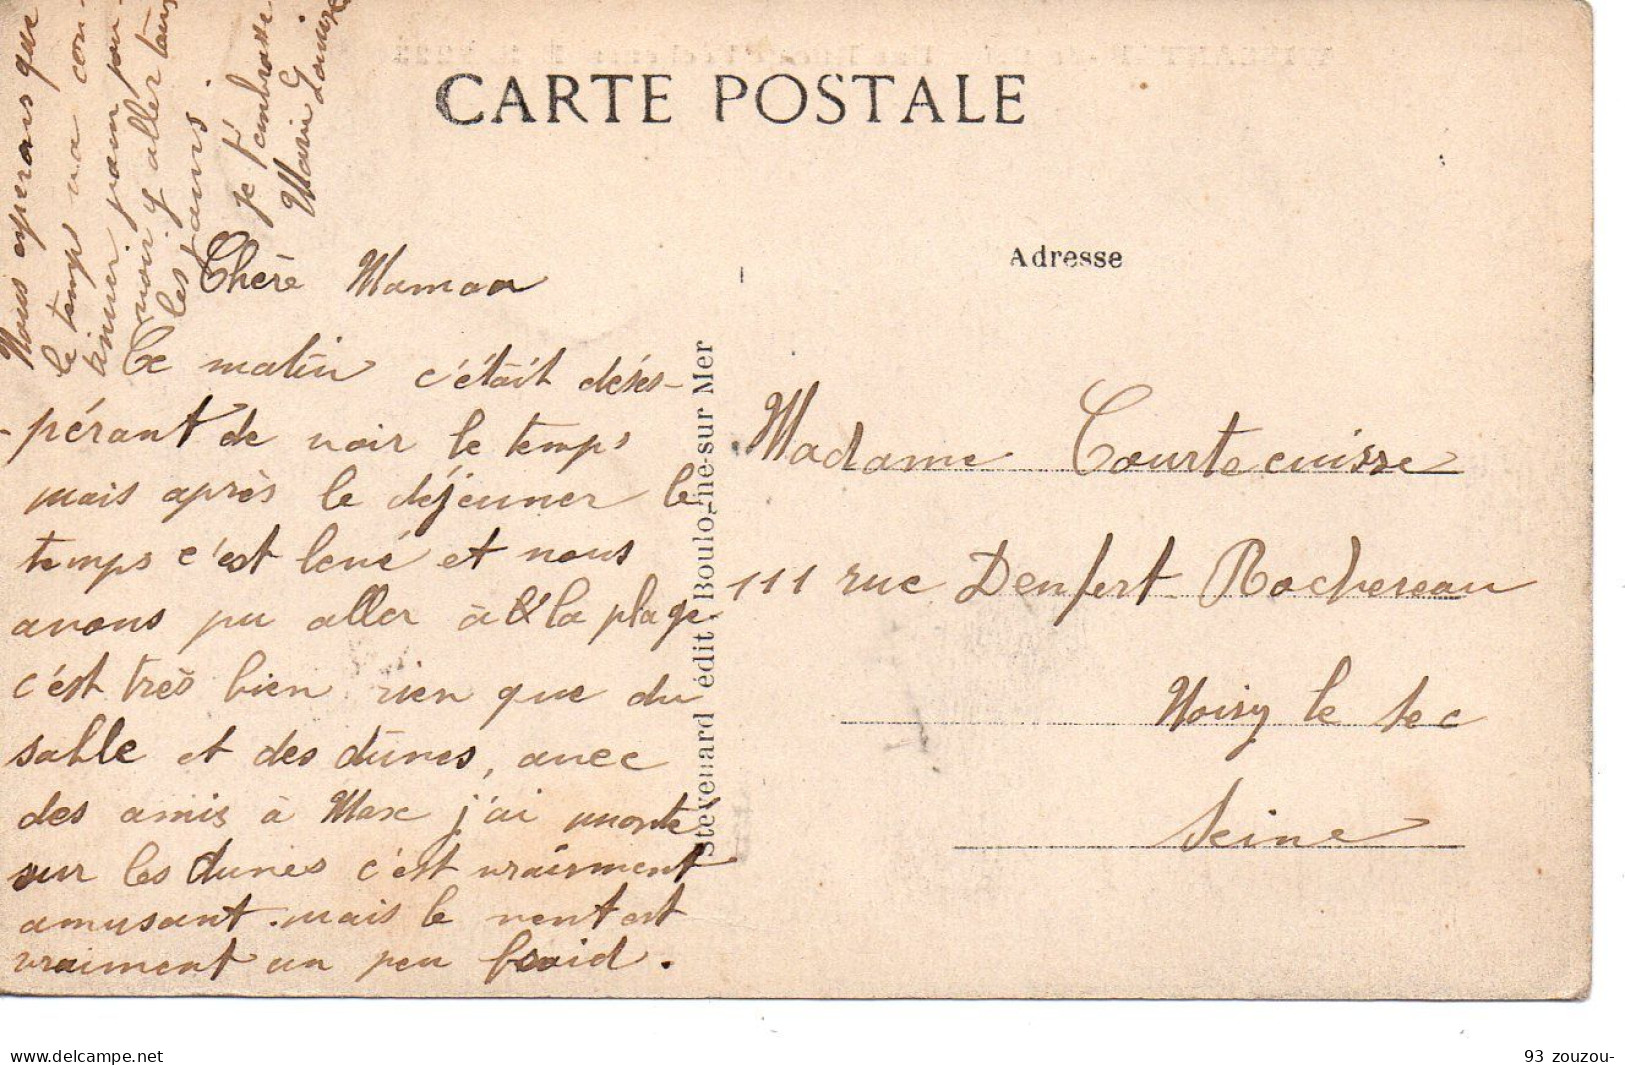 CARTE POSTALE
Adresse
Chère Maman
Ce matin c'était déses-
-pérant de voir le temps
mais après le déjeuner le
temps c'est levé et nous
avons pu aller à la plage
c'est très bien rien que du
sable et des dunes, avec
des amis à Max j'ai monté
sur les dunes c'est vraiment
amusant. mais le vent est
vraiment un peu froid.
Nous esperons que
le temps va con-
tinuer pour pou-
voir y aller tous
les jours.
je t'embrasse
Marie Louise
Stevenard édit. Boulogne-sur Mer
Madame Courtecuisse
111 rue Denfert Rochereau
Noisy le Sec
Seine
93 zouzou-
www.delcampe.net